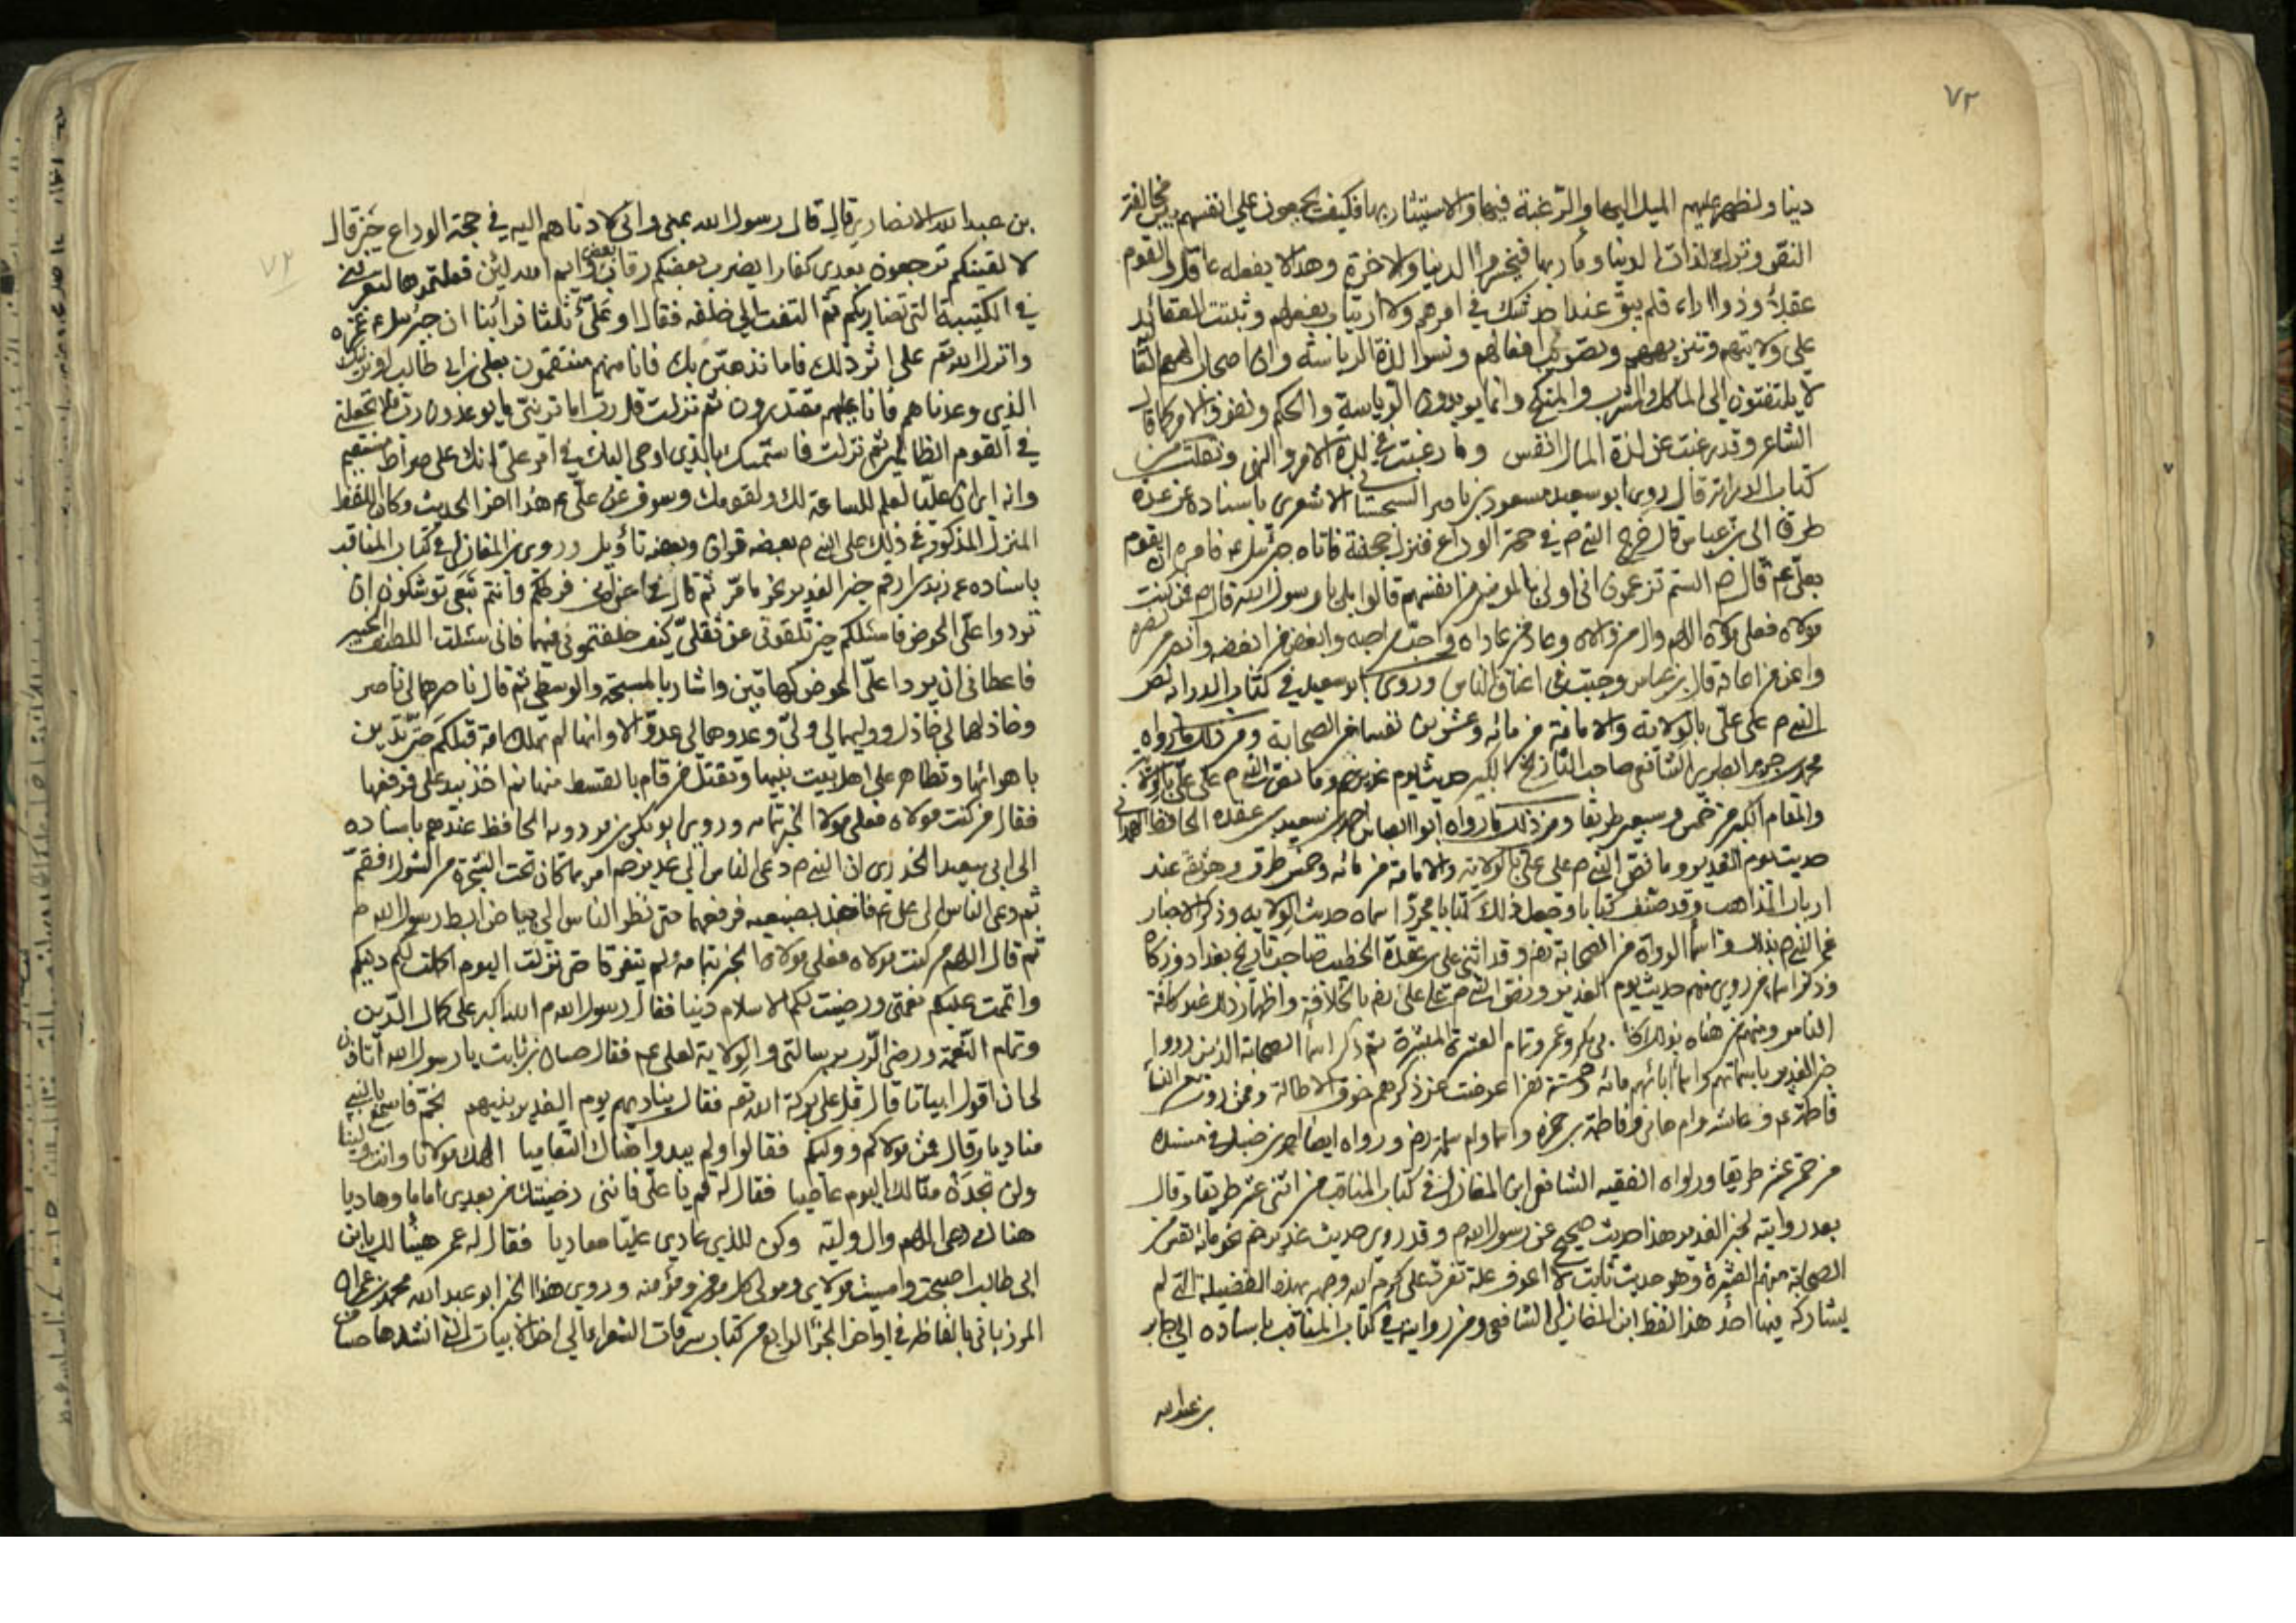 ٧٢
دينا ولظهر عليهم الميل اليها والرغبة فيها والاستيثار بها فكيف يجمعون على انفسهم بين مخالفة
النص وترك لذات الدنيا وماربها فيخسروا الدنيا والاخرة وهذا لا يفعله عاقل والقوم
عقلاء وذووا اراء فلم يبق عند احد شك في امرهم ولا ارتياب بفعلهم وثبتت العقائد
على ولايتهم وتنزيههم وتصويب افعالهم ونسوا لذة الرياسة وان اصحاب الهمم
لا يلتفتون الى الماكل والمشرب والمنكح وانما يريدون الرياسة والحكم ونفوذ الامر كما قال
الشاعر وقد رغبت عن لذة المال انفس وما رغبت عن لذة الامر والنهي ونقلت من
كتاب الدراية قال روى ابو سعيد مسعود بن ناصر السجستاني الاشعري باسناده عن عدة
طرق الى بن عباس قال خرج النبي ص في حجة الوداع فنزل جحفة فاتاه جبرئيل ع فامره ان يقوم
بعلي ع قال ص الستم تزعمون اني اولى بالمومنين من انفسهم قالوا بلى يا رسول الله قال ص فمن كنت
مولاه فعلي مولاه اللهم وال من والاه وعاد من عاداه واحب من احبه وابغض من ابغضه وانصر من نصره
واعن من اعانه قال بن عباس وجبت في اعناق الناس وروى ابو سعيد في كتاب الدراية نص
النبي م على علي بالولاية والامامة من مائة وعشرين نفسا من الصحابة ومن ذلك ما رواه
محمد بن جرير الطبري الشافعي صاحب التاريخ الكبير حديث يوم غدير خم وما نص النبي م على علي بالولاية
والمقام الكبير من خمس وسبعين طريقا ومن ذلك ما رواه ابو العباس احمد بن سعيد بن عقدة الحافظ الهمداني
حديث يوم الغدير وما نص النبي م على علي بالولاية والامامة من مائة وخمس طرق وهو ثقة عند
ارباب المذاهب وقد صنف كتابا وجعل ذلك كتابا مجردا سماه حديث الولاية وذكر الاخبار
عن النبي م بذلك واسماء الرواة من الصحابة رض وقد اثنى على بن عقدة الخطيب صاحب تاريخ بغداد وزكاه
وذكر اسماء من روى منهم حديث يوم الغدير ونص النبي م على علي رض بالخلافة واظهار ذلك عند كافة
الناس ومنهم من هناه بذلك كابي بكر وعمر وتمام العشرة المبشرة ثم ذكر اسماء الصحابة الذين رووا
خبر الغدير باسمائهم واسماء ابائهم مائة وخمسة نفرا عرضت عن ذكرهم خوف الاطالة وممن روى من النساء
فاطمة ع وعائشة وام هاني وفاطمة بن حمزة واسما وام سلمة رض ورواه ايضا احمد بن حنبل في مسنده
من خمسة عشر طريقا ورواه الفقيه الشافعي ابن المغازلي في كتاب المناقب من اثنى عشر طريقا وقال
بعد روايته لخبر الغدير هذا حديث صحيح عن رسول الله م وقد روى حديث غدير خم نحو مائة نفس من
الصحابة منهم العشرة وهو حديث ثابت لا اعرف علة تفرد علي كرم الله وجهه بهذه الفضيلة التي لم
يشاركه فيها احد هذا لفظ ابن المغازلي الشافعي ومن رواية في كتاب المناقب باسناده الى جابر
بن عبد الله
٧٢
بن عبد الله الانصاري قال قال رسول الله بمنى واني لادناهم اليه في حجة الوداع حين قال
لا لفينكم ترجعون بعدي كفارا يضرب بعضكم رقاب بعض وايم الله لئن فعلتموها لتعرفنني
في الكتيبة التي تضاربكم ثم التفت الى خلفه فقال او علي ثلثا فراينا ان جبرئيل ع غمزه
وانزل الله تع على اثر ذلك فاما نذهبن بك فانا منهم منتقمون بعلي بن ابي طالب او نرينك
الذي وعدناهم فانا عليهم مقتدرون ثم نزلت قل رب اما تريني ما يوعدون رب فلا تجعلني
في القوم الظالمين ثم نزلت فاستمسك بالذي اوحي اليك في امر علي انك على صراط مستقيم
وانه اي ان عليا لعلم للساعة لك ولقومك وسوف عن علي ع هذا اخر الحديث وكان اللفظ
المنزل المذكور في ذلك على النبي م بعضه قران وبعضه تأويل وروى بن المغازلي في كتاب المناقب
باسناده عن زيد بن ارقم خبر الغدير نحو ما مر ثم قال فيما عن اني فرطكم وانتم تبعي توشكون ان
تردوا علي الحوض فاسئلكم حين تلقوني عن ثقلي كيف خلفتموني فيهما فاني سئلت اللطيف الخبير
فاعطاني ان يردا علي الحوض كهاتين واشار بالمسبحة والوسطى ثم قال ناصرهما لي ناصر
وخاذلهما لي خاذل ووليهما لي ولي وعدوهما لي عدو الا وانها لم تهلك امة قبلكم حتى تدين
باهوائها وتظاهر على اهل بيت نبيها وتقتل من قام بالقسط منها ثم اخذ بيد علي فرفعها
فقال من كنت مولاه فعلي مولاه الخبر بتمامه وروى ابو بكر بن مردويه الحافظ عندهم باسناده
الى ابي سعيد الخدري ان النبي م دعى الناس الى غدير خم امر بما كان تحت الشجرة من الشوك فقم
ثم دعى الناس الى علي ع فاخذ بضبعيه فرفعهما حتى نظر الناس الى بياض ابط رسول الله م
ثم قال اللهم من كنت مولاه فعلي مولاه الخبر بتمامه ولم يتفرقا حتى نزلت اليوم اكملت لكم دينكم
واتممت عليكم نعمتي ورضيت لكم الاسلام دينا فقال رسول الله م الله اكبر على كمال الدين
وتمام النعمة ورضى الرب برسالتي والولاية لعلي ع فقال حسان بن ثابت يا رسول الله اتاذن
لي ان اقول ابياتا قال قل على بركة الله تع فقال يناديهم يوم الغدير نبيهم بخم فاسمع بالنبي
مناديا وقال فمن مولاكم ووليكم فقالوا ولم يبدوا هناك التعاميا الهك مولانا وانت ولينا
ولن تجدن منا لك اليوم عاصيا فقال له قم يا علي فانني رضيتك من بعدي اماما وهاديا
هناك دعى اللهم وال وليه وكن للذي عادى عليا معاديا فقال له عمر هنيئا لك يا ابن
ابي طالب اصبحت وامسيت مولاي ومولى كل مومن ومؤمنه وروى هذا الخبر ابو عبد الله محمد بن عمران
المرزباني بالفاظه في اواخر الجزء الرابع من كتاب سرقات الشعراء الى اخر الابيات التي انشدها حسان